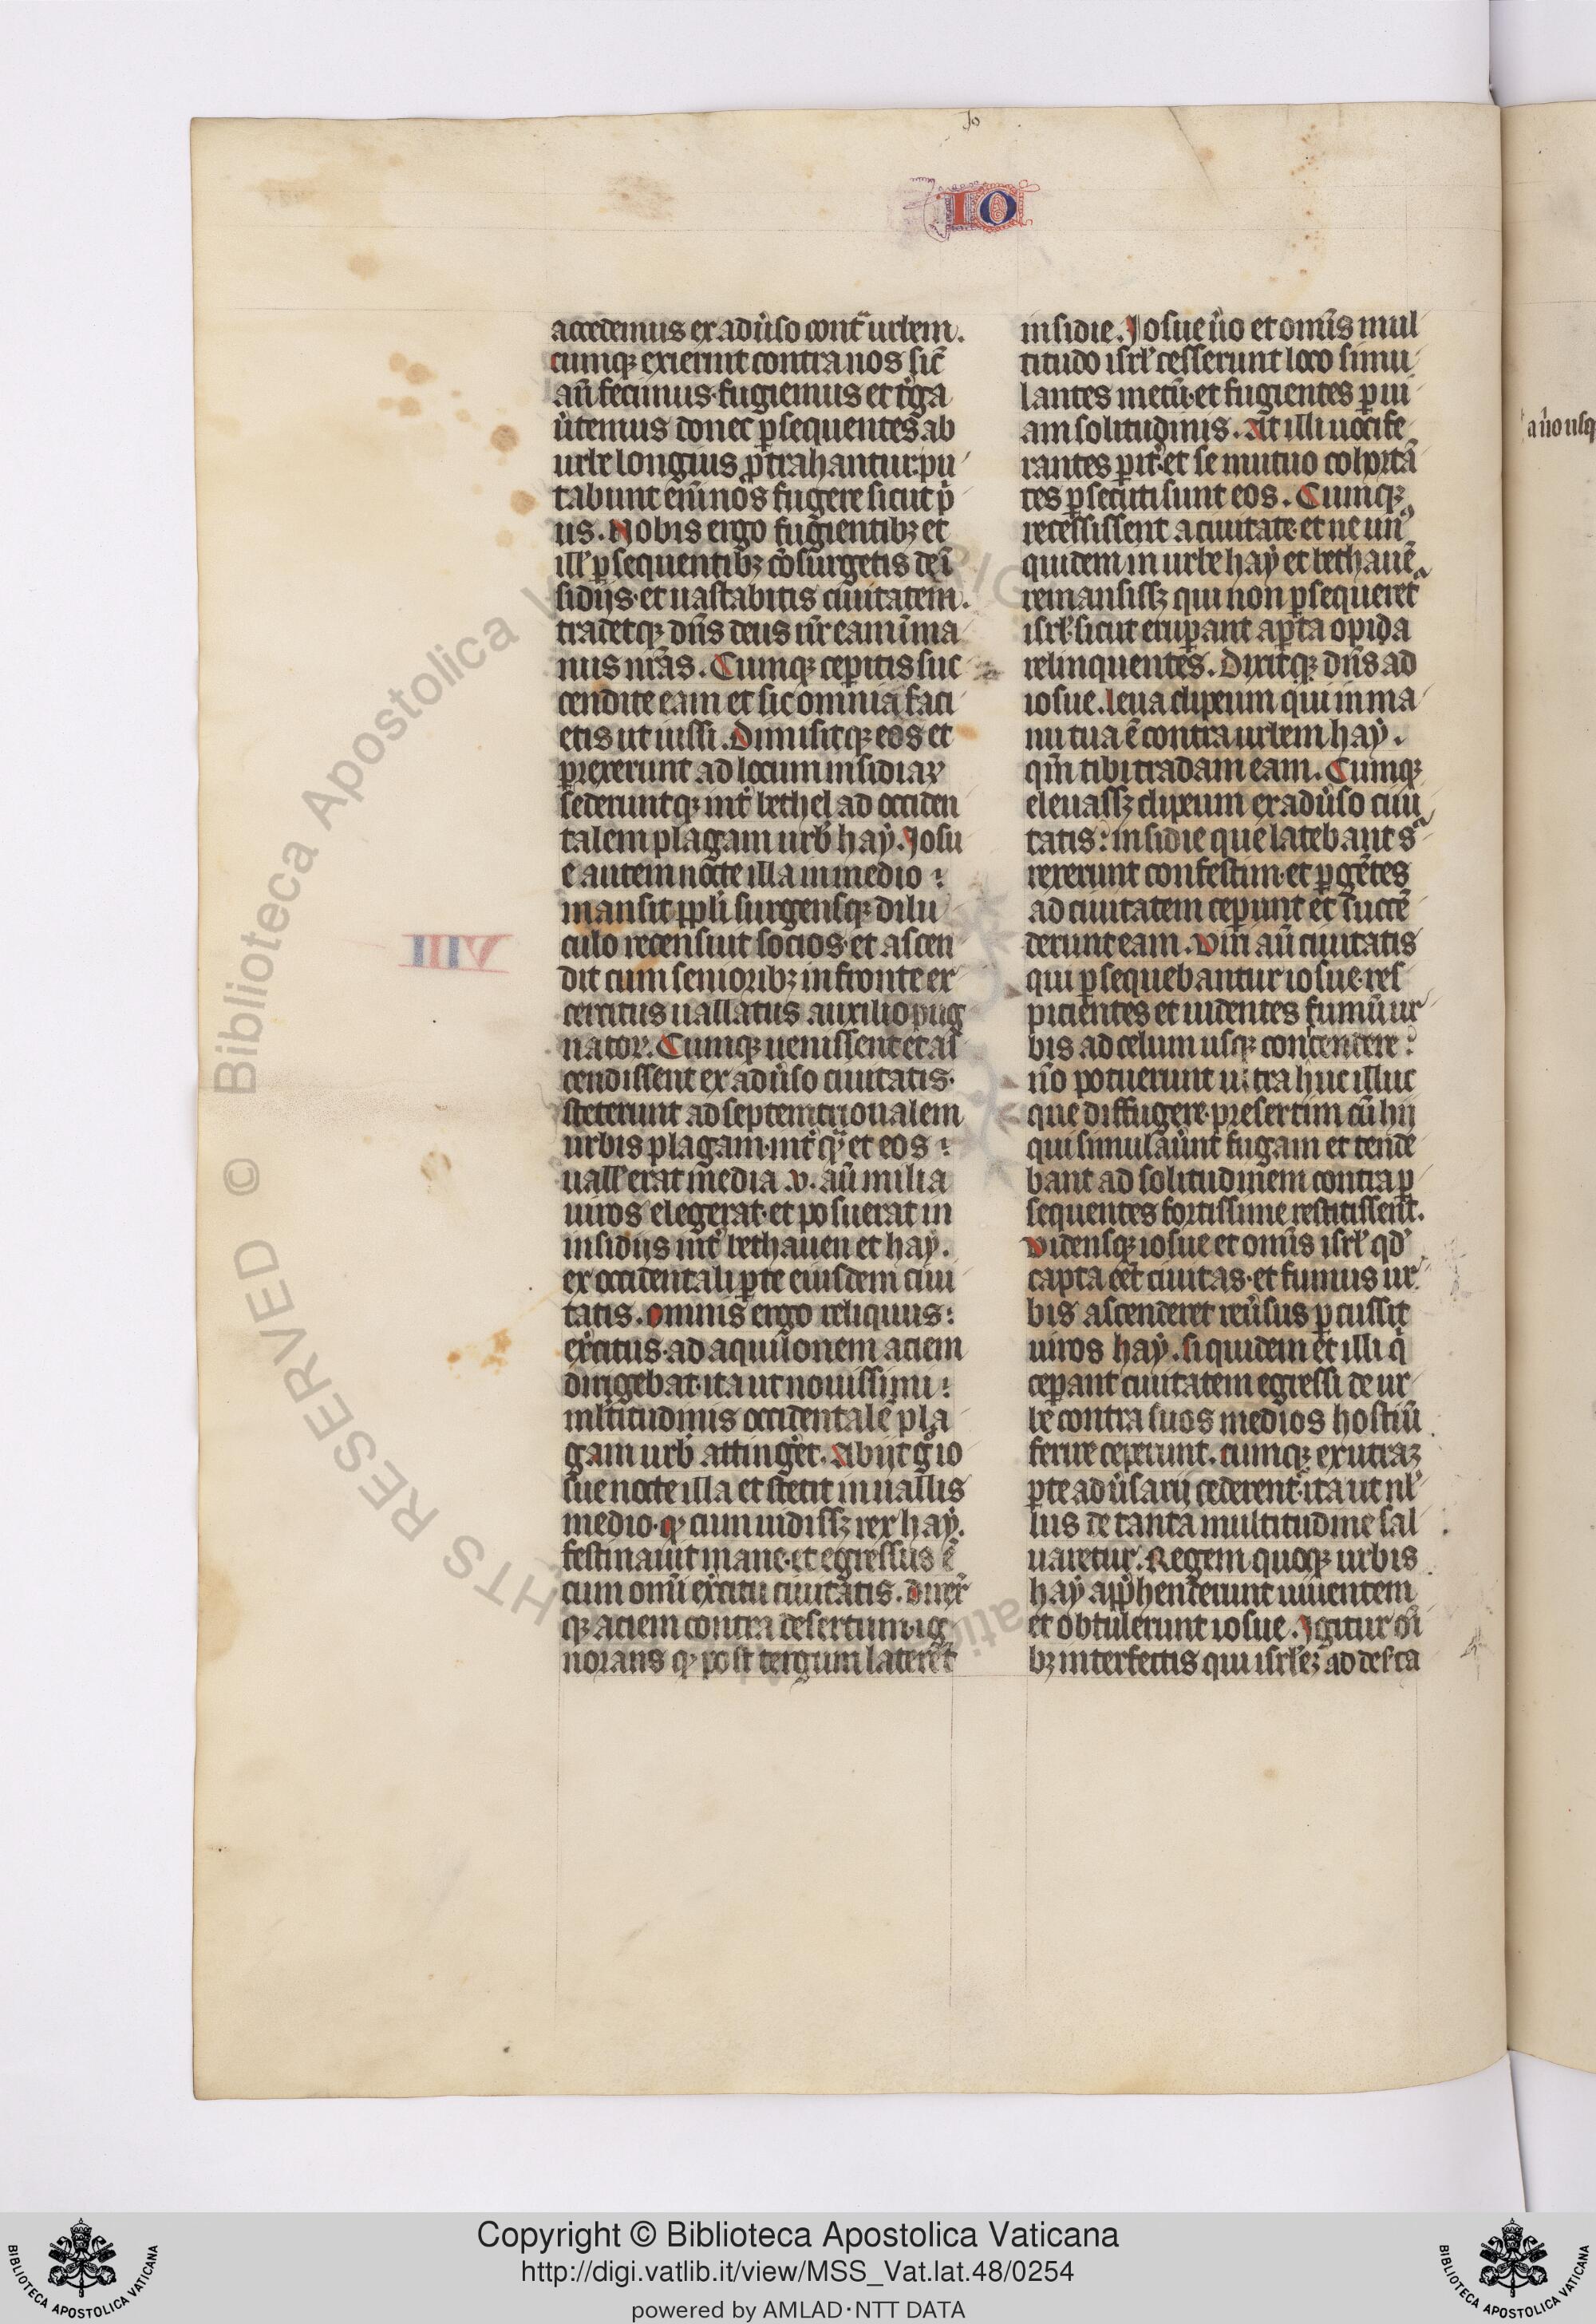 Jo
IO
accedemus ex adůso contᵃ urbem.
cumqꝫ exierint contra nos sic̄
an̄ fecimus·fugiemus et t̾ga
ůtemus donec ꝑsequentes ab
urbe longius ꝓtrahantur·pu
tabunt enī nos fugere sicut pͥ
us. Nobis ergo fugientibꝫ et
ill̾ ꝑsequentibꝫ cōsurgetis de ī
sidijs·et uastabitis ciuitatem.
tradetqꝫ dn̄s deus ur̄ eam ī ma
nus nr̄as. Cumqꝫ ceperitis suc
cendite eam et sic omnia faci
etis ut iussi. Dimisitqꝫ eos et
ꝑrexerunt ad locum insidiaꝝ
sederuntqꝫ int̾ bethel ad occiden
talem plagam urb̾ haẏ. Josu
e autem nocte illa in medio
mansit ppl̾i surgensqꝫ dilu
culo recensuit socios·et ascen
dit cum senioribꝫ in fronte ex
ercitus uallatus auxilio pug
natoꝝ. Cumqꝫ uenissent et as
cendissent ex adůso ciuitatis·
steterunt ad septemtrionalem
urbis plagam·int̾ qᵃ et eos
uall̾ erat media .v. aū milia
uiros elegerat·et posuerat in
insidijs int̾ bethauen et haẏ.
ex occidentali ꝑte eiusdem ciui
tatis. omnis ergo reliquus
ex̾citus·ad aquilonem aciem
dirigebat·ita ut nouissimi
ml̾titudinis occidentalē pla
gam urb̾ attinger̾t. Abijt gͦ io
sue nocte illa et stetit in uallis
medio·qꝫ cum uidissꝫ rex haẏ.
festinauit mane·et egressus ē
cum om̄i ex̾citu ciuitatis. direx̾
qꝫ aciem contra desertum·ig
norans qꝫ post tergum later̄et
VIII
insidie. Josue ůo et om̄is mul
titudo isrl̾ cesserunt loco simu
lantes metū·et fugientes ꝑ ui
am solitudinis. At illi uocife
rantes ꝑit̾·et se mutuo cohortā
tes ꝑsecuti sunt eos. Cumqꝫ
recessissent a ciuitate·et ne unꝰ
quidem in urbe haẏ et bethauē
remansissꝫ qui non ꝑsequeretᷣ
isrl̾·sicut eruꝑant aꝑta opida
relinquentes. Dixitqꝫ dn̄s ad
iosue. leua clipeum qui in ma
nu tua ē contra urbem haẏ.
qm̄ tibi tradam eam. Cumqꝫ
eleuassꝫ clipeum ex adůso ciui
tatis: insidie que latebant sᷣ
rexerunt confestim·et ꝑgētes
ad ciuitatem ceꝑunt et succē
derunt eam. Viri aū ciuitatis
qui ꝑsequebantur iosue·res
picientes et uidentes fumū ur
bis ad celum usqꝫ conscendere:
nō potuerunt ultra huc illuc
que diffugere·presertim cū hij
qui simulaůnt fugam et tende
bant ad solitudinem contra ꝑ
sequentes fortissime restitissent.
Vidensqꝫ iosue et om̄is isrl̾ qd̾
capta eēt ciuitas·et fumus ur
bis ascenderet reůsus ꝑcussit
uiros haẏ. siquidem et illi qͥ
ceꝑant ciuitatem egressi de ur
be contra suos medios hostiū
ferire ceperunt. cumqꝫ ex utraqꝫ
ꝑte adůsarij cederent·ita ut nl̾
lus de tanta multitudine sal
uaretur. Regem quoqꝫ urbis
haẏ appͪhenderunt uiuentem
et obtulerunt iosue. Igitur om̄i
bꝫ interfectis qui isrl̾eꝫ ad deserta
a ůo usq
© Biblioteca Apostolica Vaticana
Copyright © Biblioteca Apostolica Vaticana
http://digi.vatlib.it/view/MSS_Vat.lat.48/0254
powered by AMLAD·NTT DATA
BIBLIOTECA APOSTOLICA VATICANA
BIBLIOTECA APOSTOLICA VATICANA